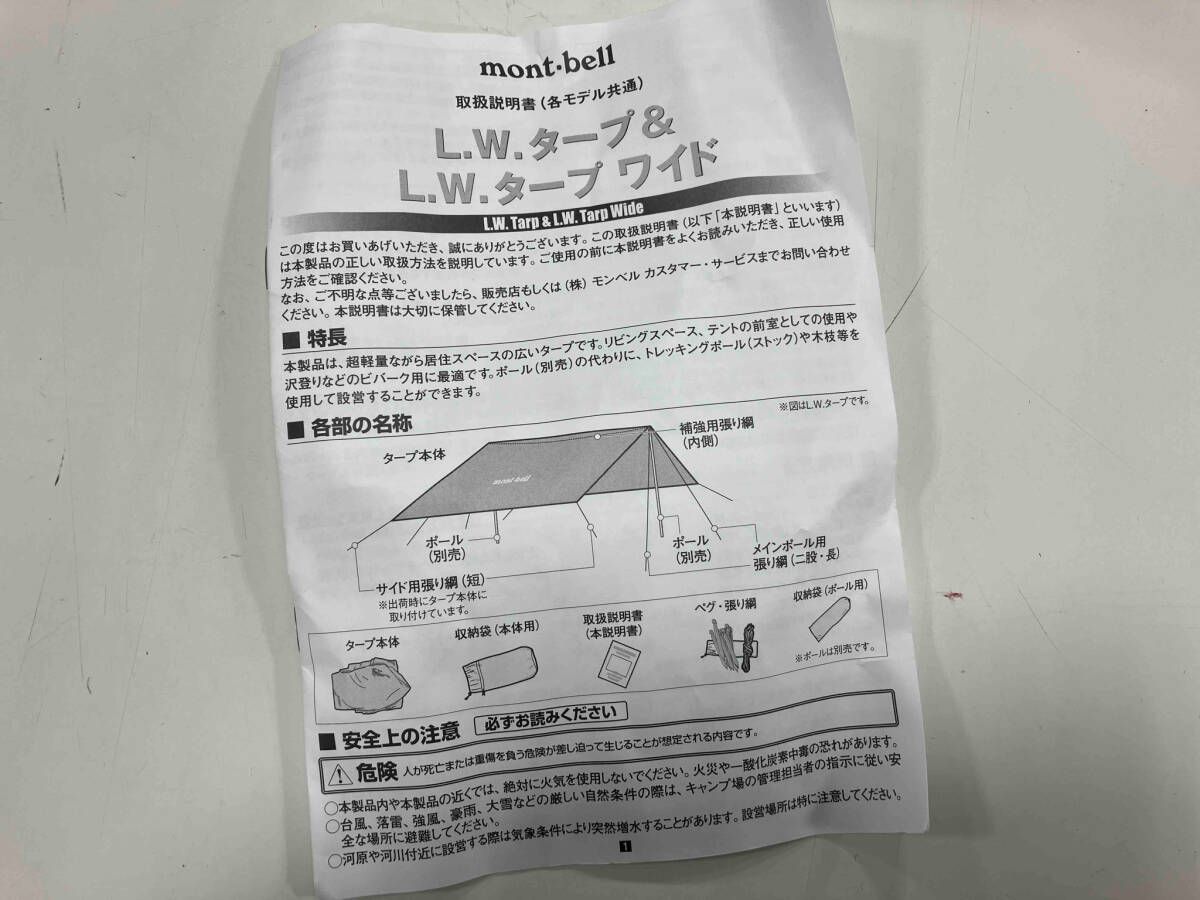 mont·bell
取扱説明書(各モデル共通)
L.W.タープ&
L.W.タープ ワイド
L.W. Tarp & L.W. Tarp Wide
この度はお買いあげいただき、誠にありがとうございます。この取扱説明書(以下「本説明書」といいます)
は本製品の正しい取扱方法を説明しています。ご使用の前に本説明書をよくお読みいただき、正しい使用
方法をご確認ください。
なお、ご不明な点等ございましたら、販売店もしくは(株)モンベル カスタマー・サービスまでお問い合わせ
ください。本説明書は大切に保管してください。
■ 特長
本製品は、超軽量ながら居住スペースの広いタープです。リビングスペース、テントの前室としての使用や
沢登りなどのビバーク用に最適です。ポール(別売)の代わりに、トレッキングポール(ストック)や木枝等を
使用して設営することができます。
■ 各部の名称
※図はL.W.タープです。
タープ本体
補強用張り綱
(内側)
mont-bell
ポール
(別売)
ポール
(別売)
メインポール用
張り綱(二股・長)
サイド用張り綱(短)
※出荷時にタープ本体に
取り付けています。
タープ本体
収納袋(本体用)
取扱説明書
(本説明書)
ペグ・張り綱
収納袋(ポール用)
※ポールは別売です。
■ 安全上の注意 必ずお読みください
⚠ 危険 人が死亡または重傷を負う危険が差し迫って生じることが想定される内容です。
○本製品内や本製品の近くでは、絶対に火気を使用しないでください。火災や一酸化炭素中毒の恐れがあります。
○台風、落雷、強風、豪雨、大雪などの厳しい自然条件の際は、キャンプ場の管理担当者の指示に従い安
全な場所に避難してください。
○河原や河川付近に設営する際は気象条件により突然増水することがあります。設営場所は特に注意してください。
1